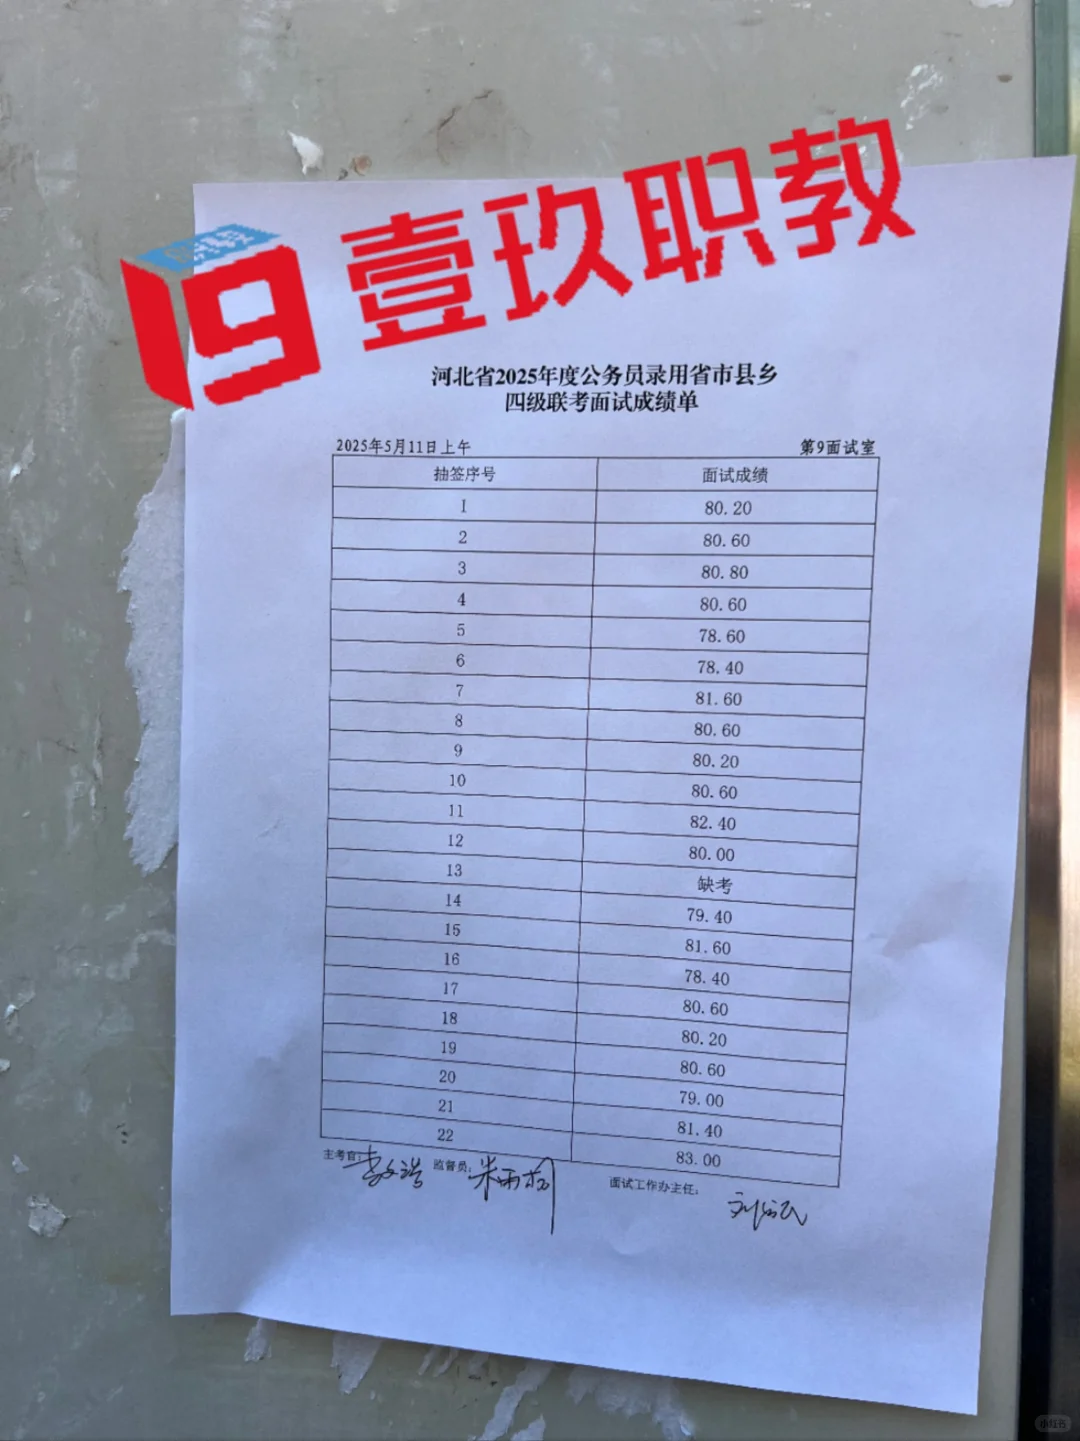 19 壹玖职教
河北省2025年度公务员录用省市县乡
四级联考面试成绩单
2025年5月11日上午 第9面试室
抽签序号 面试成绩
1 80.20
2 80.60
3 80.80
4 80.60
5 78.60
6 78.40
7 81.60
8 80.60
9 80.20
10 80.60
11 82.40
12 80.00
13 缺考
14 79.40
15 81.60
16 78.40
17 80.60
18 80.20
19 80.60
20 79.00
21 81.40
22 83.00
主考官： 监督员： 面试工作办主任：
小红书